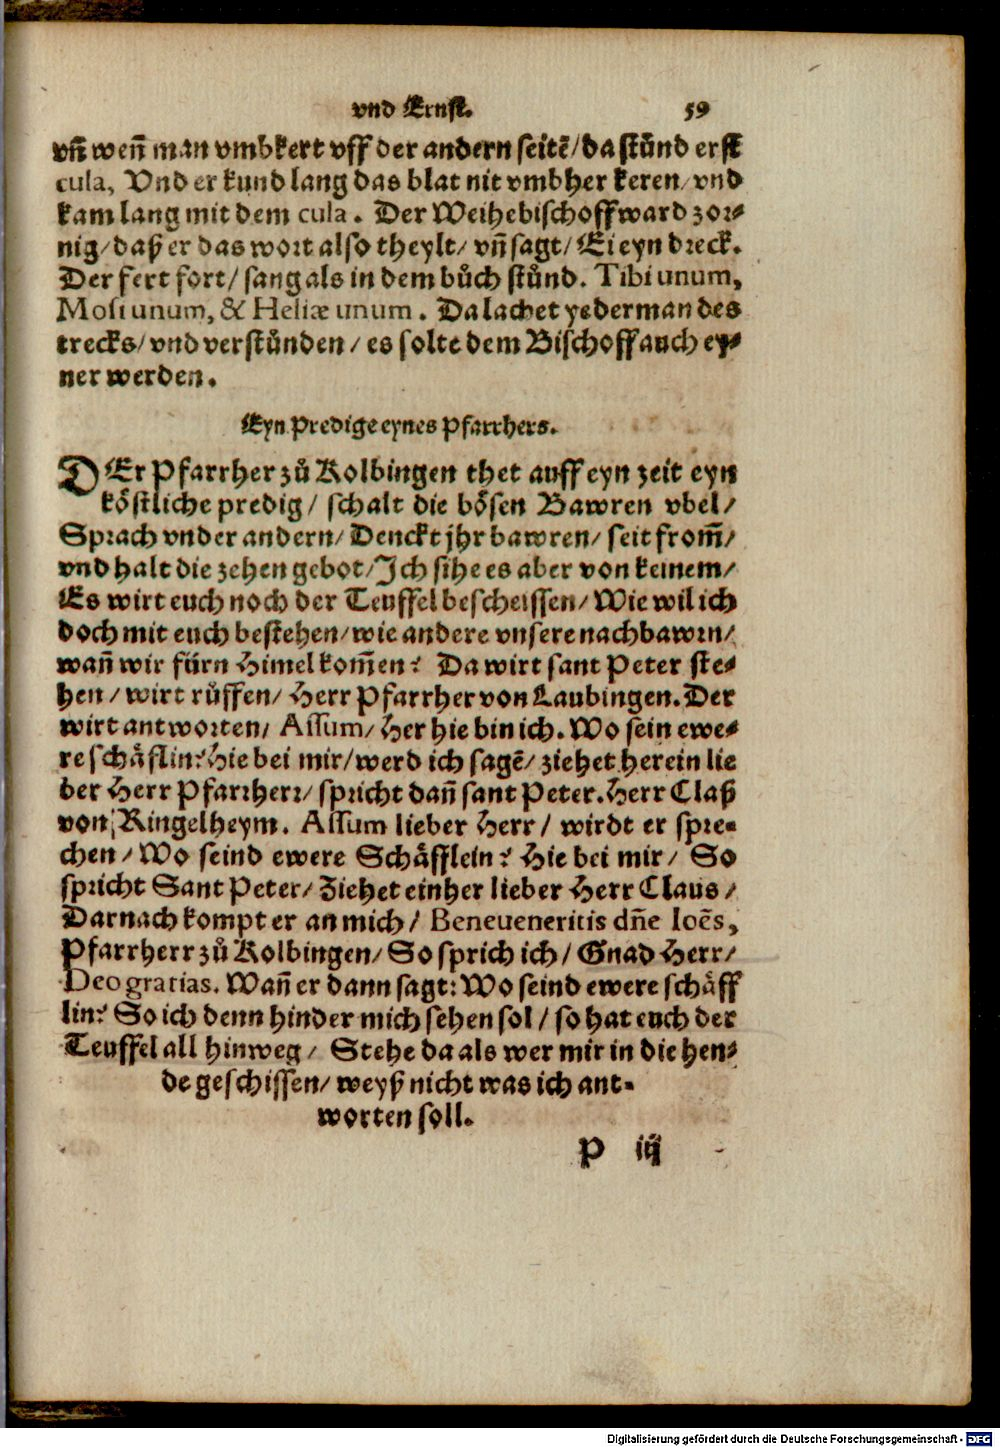 vnd Ernst. 59
vñ weñ man vmbkert vff der andern seitẽ/ da stůnd erst
cula, Vnd er kund lang das blat nit vmbher keren/ vnd
kam lang mit dem cula. Der Weihebischoff ward zor⸗
nig/ daß er das wort also theylt/ vñ sagt/ Ei eyn dreck.
Der fert fort/ sang als in dem bůch stůnd. Tibi unum,
Mosi unum, & Heliæ unum. Da lachet yederman des
trecks/ vnd verstůnden/ es solte dem Bischoff auch ey⸗
ner werden.
Eyn Predige eynes Pfarrhers.
DEr Pfarrher zů Kolbingen thet auff eyn zeit eyn
köstliche predig/ schalt die bösen Bawren vbel/
Sprach vnder andern/ Denckt jhr bawren/ seit from̃/
vnd halt die zehen gebot/ Ich sihe es aber von keinem/
Es wirt euch noch der Teuffel bescheissen/ Wie wil ich
doch mit euch bestehen/ wie andere vnsere nachbawrn/
wañ wir fürn Himel kom̃en? Da wirt sant Peter ste⸗
hen/ wirt růffen/ Herr Pfarrher von Laubingen. Der
wirt antworten/ Assum/ Her hie bin ich. Wo sein ewe⸗
re schäflin? Hie bei mir/ werd ich sagẽ/ ziehet herein lie
ber Herr Pfarrherr/ spricht dañ sant Peter. Herr Claß
von Ringelheym. Assum lieber Herr/ wirdt er spre⸗
chen/ Wo seind ewere Schäfflein? Hie bei mir/ So
spricht Sant Peter/ Ziehet einher lieber Herr Claus/
Darnach kompt er an mich/ Beneveneritis dñe Ioẽs,
Pfarrherr zů Kolbingen/ So sprich ich/ Gnad Herr/
Deo gratias. Wañ er dann sagt: Wo seind ewere schäff
lin? So ich denn hinder mich sehen sol/ so hat euch der
Teuffel all hinweg/ Stehe da als wer mir in die hen⸗
de geschissen/ weyß nicht was ich ant⸗
worten soll.
P iij
Digitalisierung gefördert durch die Deutsche Forschungsgemeinschaft - DFG